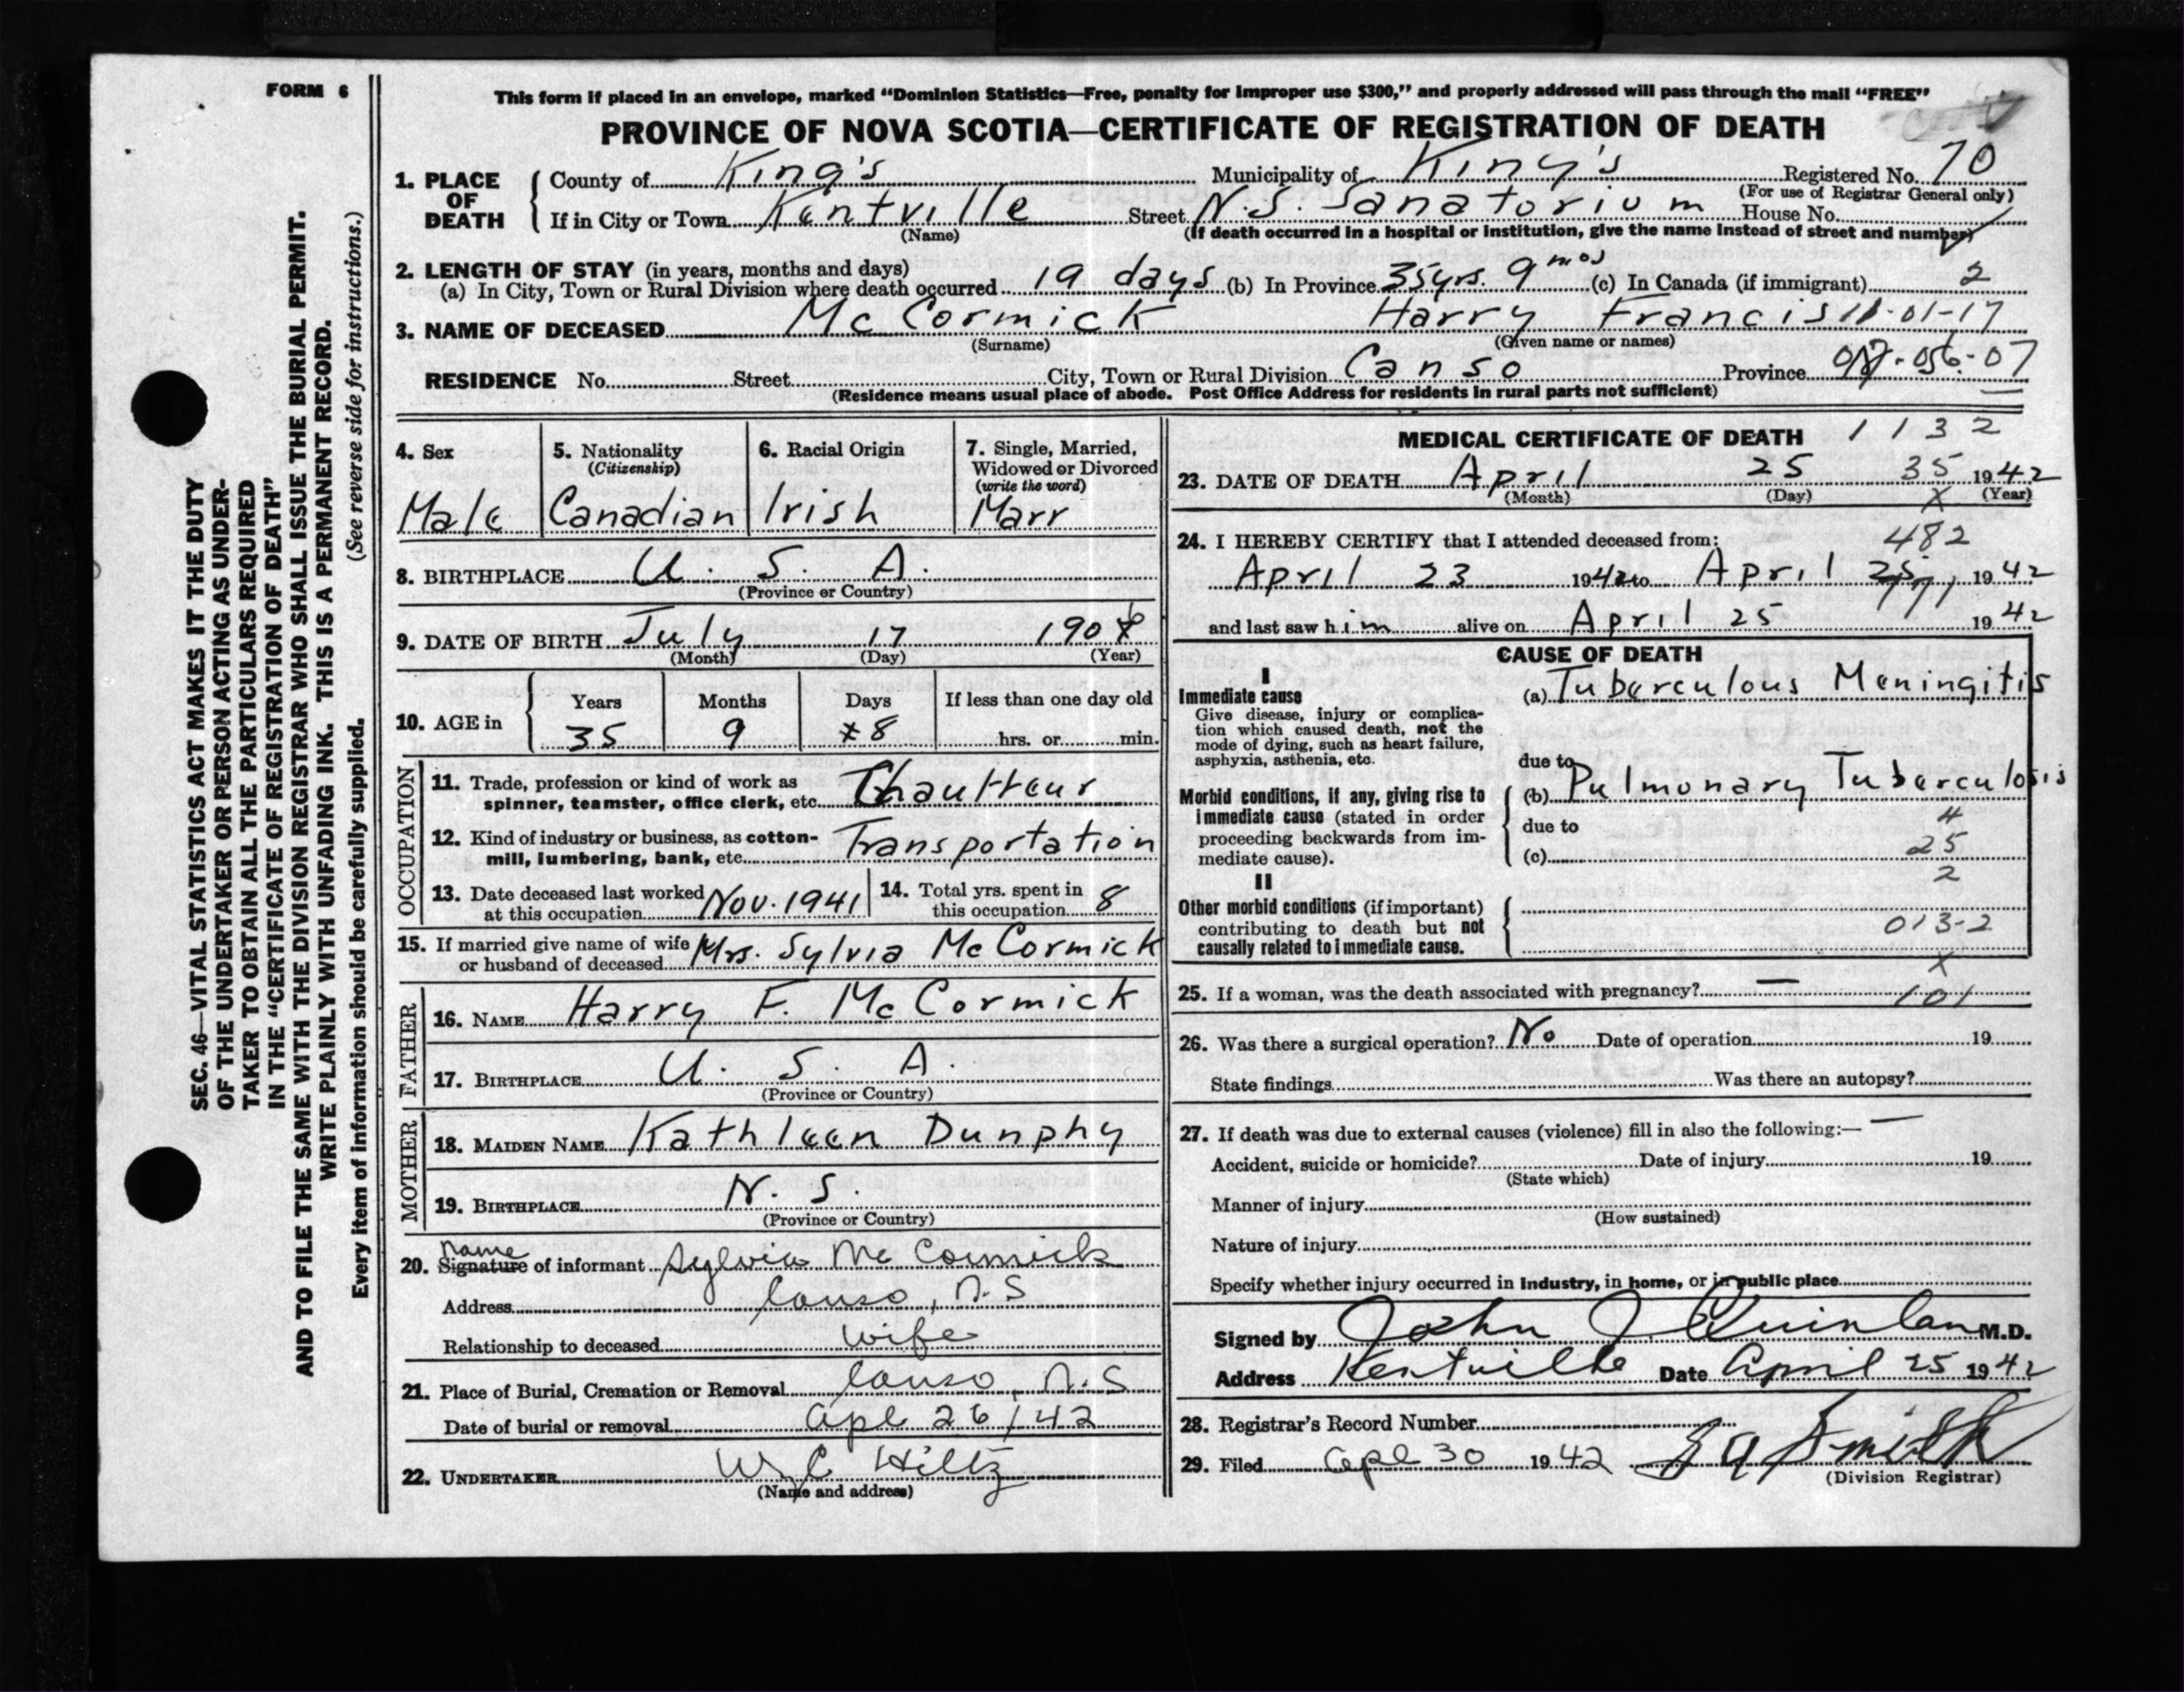 FORM 6
This form if placed in an envelope, marked "Dominion Statistics—Free, penalty for improper use $300," and properly addressed will pass through the mail "FREE"
PROVINCE OF NOVA SCOTIA—CERTIFICATE OF REGISTRATION OF DEATH
1. PLACE OF DEATH County of King's Municipality of King's Registered No. 70
(For use of Registrar General only)
If in City or Town Kentville Street N.S. Sanatorium House No.
(Name) (If death occurred in a hospital or institution, give the name instead of street and number)
2. LENGTH OF STAY (in years, months and days)
(a) In City, Town or Rural Division where death occurred 19 days (b) In Province 35 yrs. 9 mos (c) In Canada (if immigrant) 2
3. NAME OF DECEASED McCormick Harry Francis 11-01-17
(Surname) (Given name or names)
RESIDENCE No. Street City, Town or Rural Division Canso Province 07-056-07
(Residence means usual place of abode. Post Office Address for residents in rural parts not sufficient)
4. Sex 5. Nationality 6. Racial Origin 7. Single, Married,
(Citizenship) Widowed or Divorced
(write the word)
Male Canadian Irish Marr
8. BIRTHPLACE U. S. A.
(Province or Country)
9. DATE OF BIRTH July 17 1906
(Month) (Day) (Year)
10. AGE in Years Months Days If less than one day old
35 9 8 hrs. or min.
OCCUPATION
11. Trade, profession or kind of work as
spinner, teamster, office clerk, etc. Chauffeur
12. Kind of industry or business, as cotton-
mill, lumbering, bank, etc. Transportation
13. Date deceased last worked
at this occupation Nov. 1941 14. Total yrs. spent in
this occupation 8
15. If married give name of wife
or husband of deceased Mrs. Sylvia McCormick
FATHER
16. NAME Harry F. McCormick
17. BIRTHPLACE U. S. A.
(Province or Country)
MOTHER
18. MAIDEN NAME Kathleen Dunphy
19. BIRTHPLACE N. S.
(Province or Country)
name
20. Signature of informant Sylvia McCormick
Address Canso, N.S
Relationship to deceased wife
21. Place of Burial, Cremation or Removal Canso, N.S
Date of burial or removal Apl 26/42
22. UNDERTAKER W C Hiltz
(Name and address)
MEDICAL CERTIFICATE OF DEATH 1132
23. DATE OF DEATH April 25 35 1942
(Month) (Day) X (Year)
24. I HEREBY CERTIFY that I attended deceased from: 482
April 23 1942 to April 25, 1942
and last saw him alive on April 25 1942
CAUSE OF DEATH
I
Immediate cause (a) Tuberculous Meningitis
Give disease, injury or complica-
tion which caused death, not the
mode of dying, such as heart failure,
asphyxia, asthenia, etc.
due to
Morbid conditions, if any, giving rise to (b) Pulmonary Tuberculosis
immediate cause (stated in order
proceeding backwards from im-
mediate cause).
due to 4
(c) 25
II 2
Other morbid conditions (if important)
contributing to death but not 013-2
causally related to immediate cause.
X
25. If a woman, was the death associated with pregnancy? — 101
26. Was there a surgical operation? No Date of operation 19
State findings Was there an autopsy?
27. If death was due to external causes (violence) fill in also the following:— —
Accident, suicide or homicide? Date of injury 19
(State which)
Manner of injury
(How sustained)
Nature of injury
Specify whether injury occurred in industry, in home, or in public place
Signed by John J Quinlan M.D.
Address Kentville Date April 25 1942
28. Registrar's Record Number
29. Filed Apl 30 1942 Smith
(Division Registrar)
SEC. 46—VITAL STATISTICS ACT MAKES IT THE DUTY
OF THE UNDERTAKER OR PERSON ACTING AS UNDER-
TAKER TO OBTAIN ALL THE PARTICULARS REQUIRED
IN THE "CERTIFICATE OF REGISTRATION OF DEATH"
AND TO FILE THE SAME WITH THE DIVISION REGISTRAR WHO SHALL ISSUE THE BURIAL PERMIT.
WRITE PLAINLY WITH UNFADING INK. THIS IS A PERMANENT RECORD.
(See reverse side for instructions.)
Every item of information should be carefully supplied.